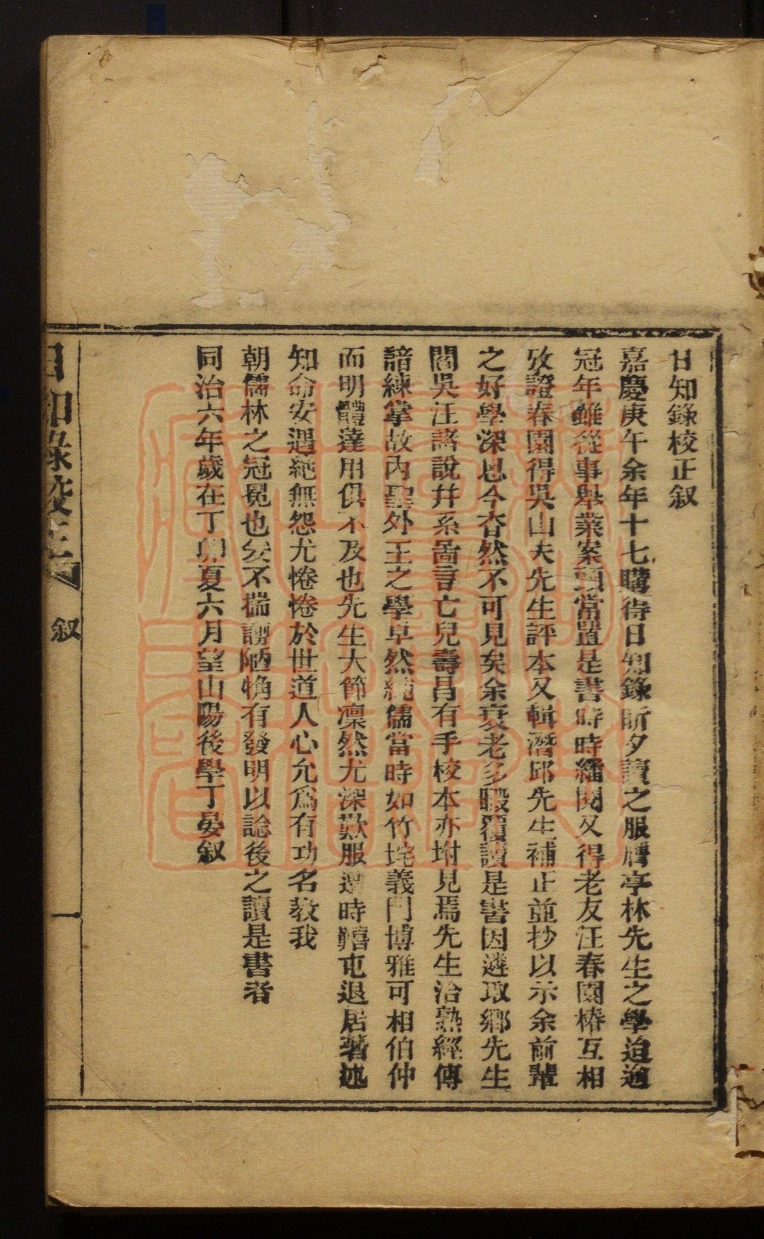 日知錄校正叙
嘉慶庚午余年十七購得日知錄昕夕讀之服膺亭林先生之學迨逾
冠年雖從事舉業案頭常置是書時時繙閱又得老友汪春園椿互相
攷證春園得吳山夫先生評本又輯潛邱先生補正並抄以示余前輩
之好學深思今杳然不可見矣余衰老多暇覆讀是書因遴取鄉先生
閻吳汪諸說幷系啚言亡兒壽昌有手校本亦坿見焉先生治熟經傳
諳練掌故內聖外王之學卓然純儒當時如竹垞義門博雅可相伯仲
而明體達用俱不及也先生大節凜然尤深歎服遭時囏屯退居著述
知命安遇絕無怨尤惓惓於世道人心允爲有功名敎我
朝儒林之冠冕也爰不揣謭陋犄有發明以諗後之讀是書者
同治六年歲在丁卯夏六月望山陽後學丁晏叙
日知錄校正
叙
一